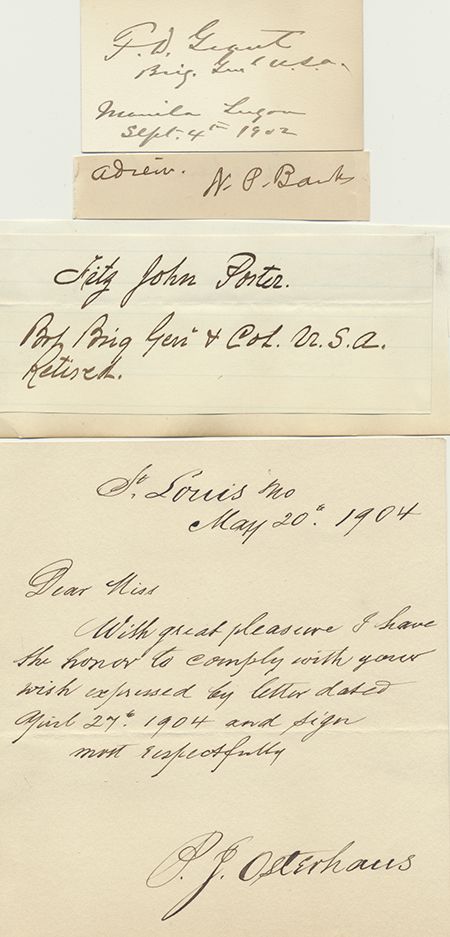 F. D. Grant
Brig. Genl U.S.A.
Manila Luzon
Sept. 4th 1902
adieu. N. P. Banks
Fitz John Porter.
Bvt Brig Genl & Col. U.S.A.
Retired.
St. Louis Mo
May 20th. 1904
Dear Miss
With great pleasure I have
the honor to comply with your
wish expressed by letter dated
April 27th. 1904 and sign
most respectfully
P. J. Osterhaus